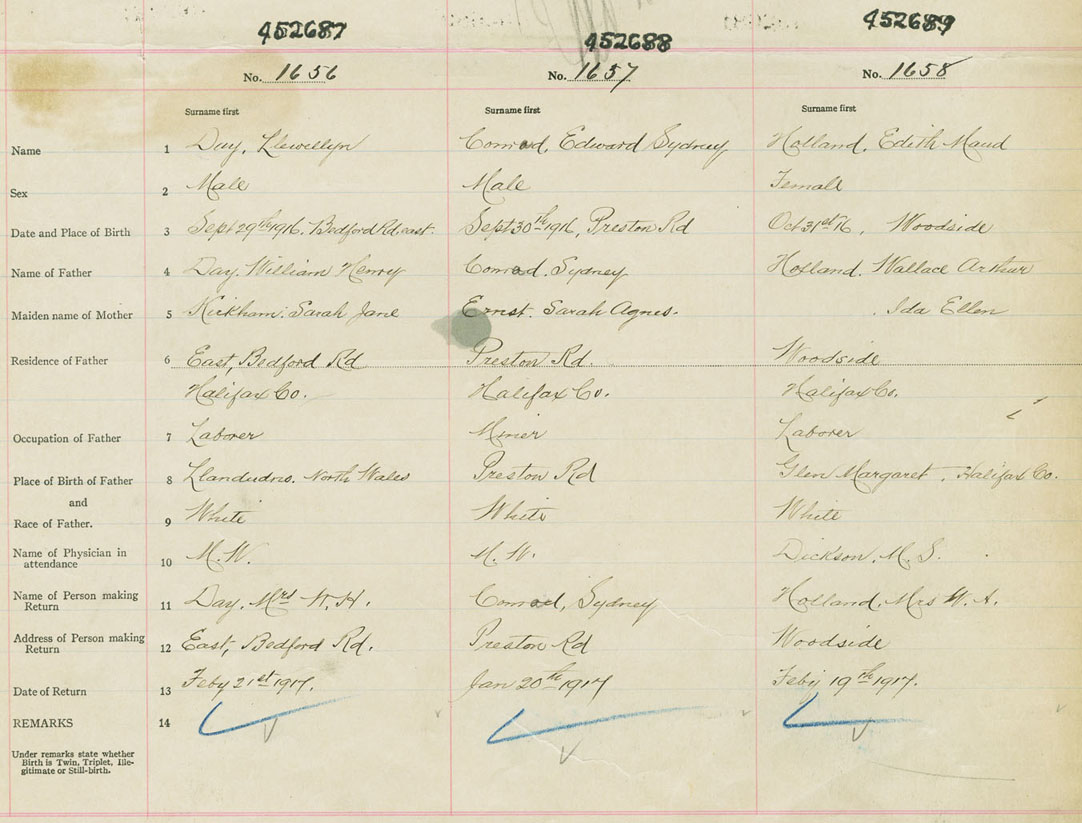 452687 452688 452689
No. 1656 No. 1657 No. 1658
Surname first Surname first Surname first
Name 1 Day, Llewellyn Conrad, Edward Sydney Holland, Edith Maud
Sex 2 Male Male Female
Date and Place of Birth 3 Sept 29th 1916. Bedford Rd east. Sept 30th 1916, Preston Rd Oct 31st 16, Woodside
Name of Father 4 Day. William Henry Conrad. Sydney Holland. Wallace Arthur
Maiden name of Mother 5 Kickham. Sarah Jane Ernst. Sarah Agnes. . Ida Ellen
Residence of Father 6 East, Bedford Rd Preston Rd. Woodside
Halifax Co. Halifax Co. Halifax Co.
Occupation of Father 7 Laborer Miner Laborer
Place of Birth of Father 8 Llandudno. North Wales Preston Rd Glen Margaret, Halifax Co.
and
Race of Father. 9 White White White
Name of Physician in
attendance 10 M. W. M. W. Dickson, M. S.
Name of Person making
Return 11 Day, Mrs W. H. Conrad, Sydney Holland, Mrs W. A.
Address of Person making
Return 12 East, Bedford Rd. Preston Rd Woodside
Date of Return 13 Feby 21st 1917. Jan 20th 1917 Feby 19th 1917.
REMARKS 14
Under remarks state whether
Birth is Twin, Triplet, Ille-
gitimate or Still-birth.